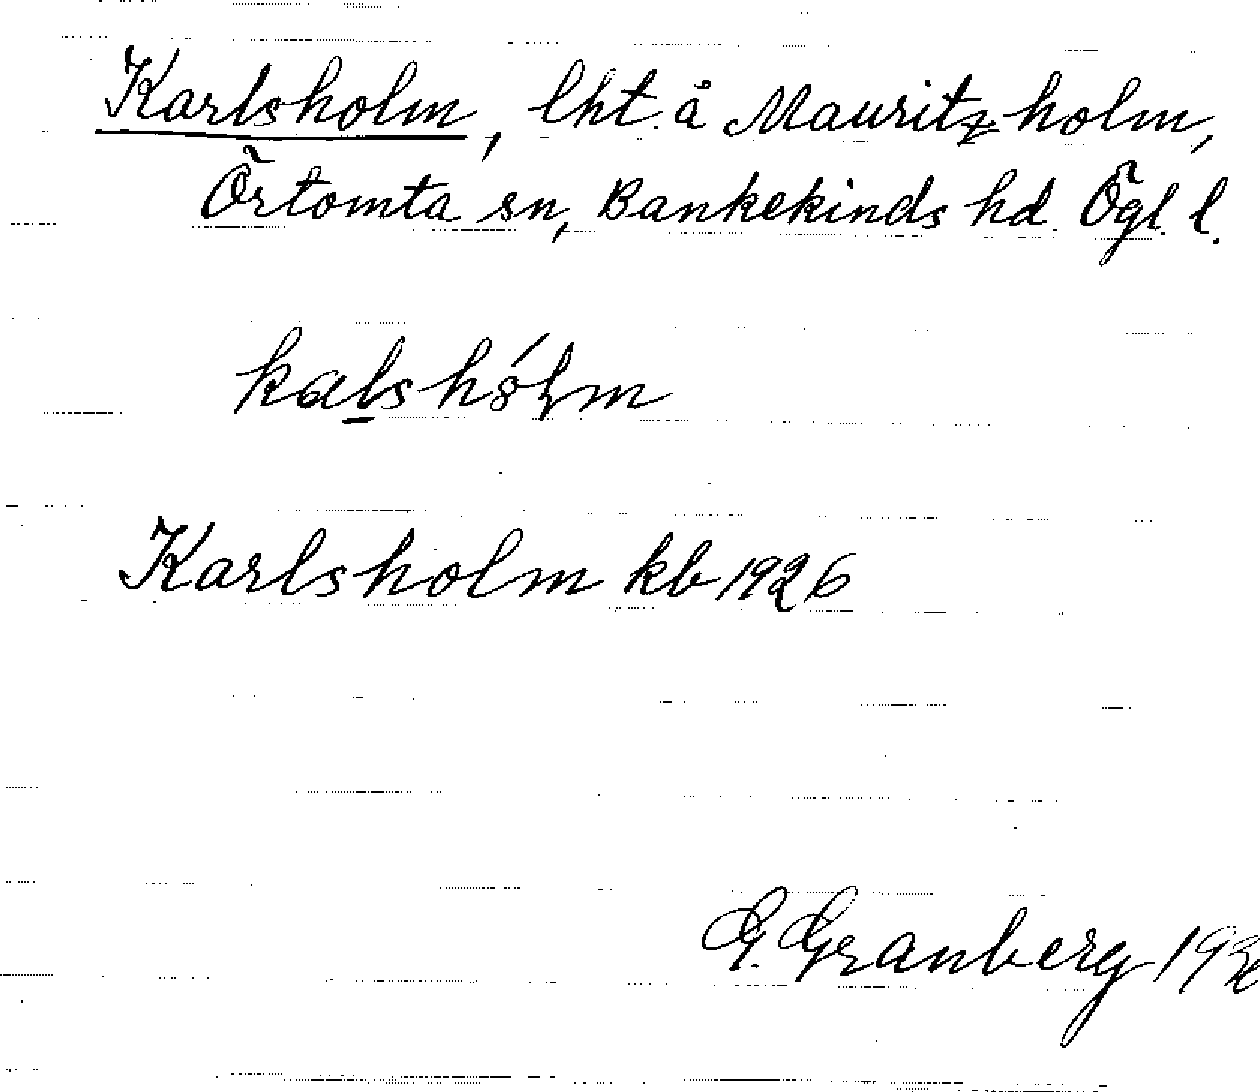 Karlsholm, lht. å Mauritzholm,
Örtomta sn, Bankekinds hd. Ögl. l.
Karlsholm kb 1926
G. Granberg